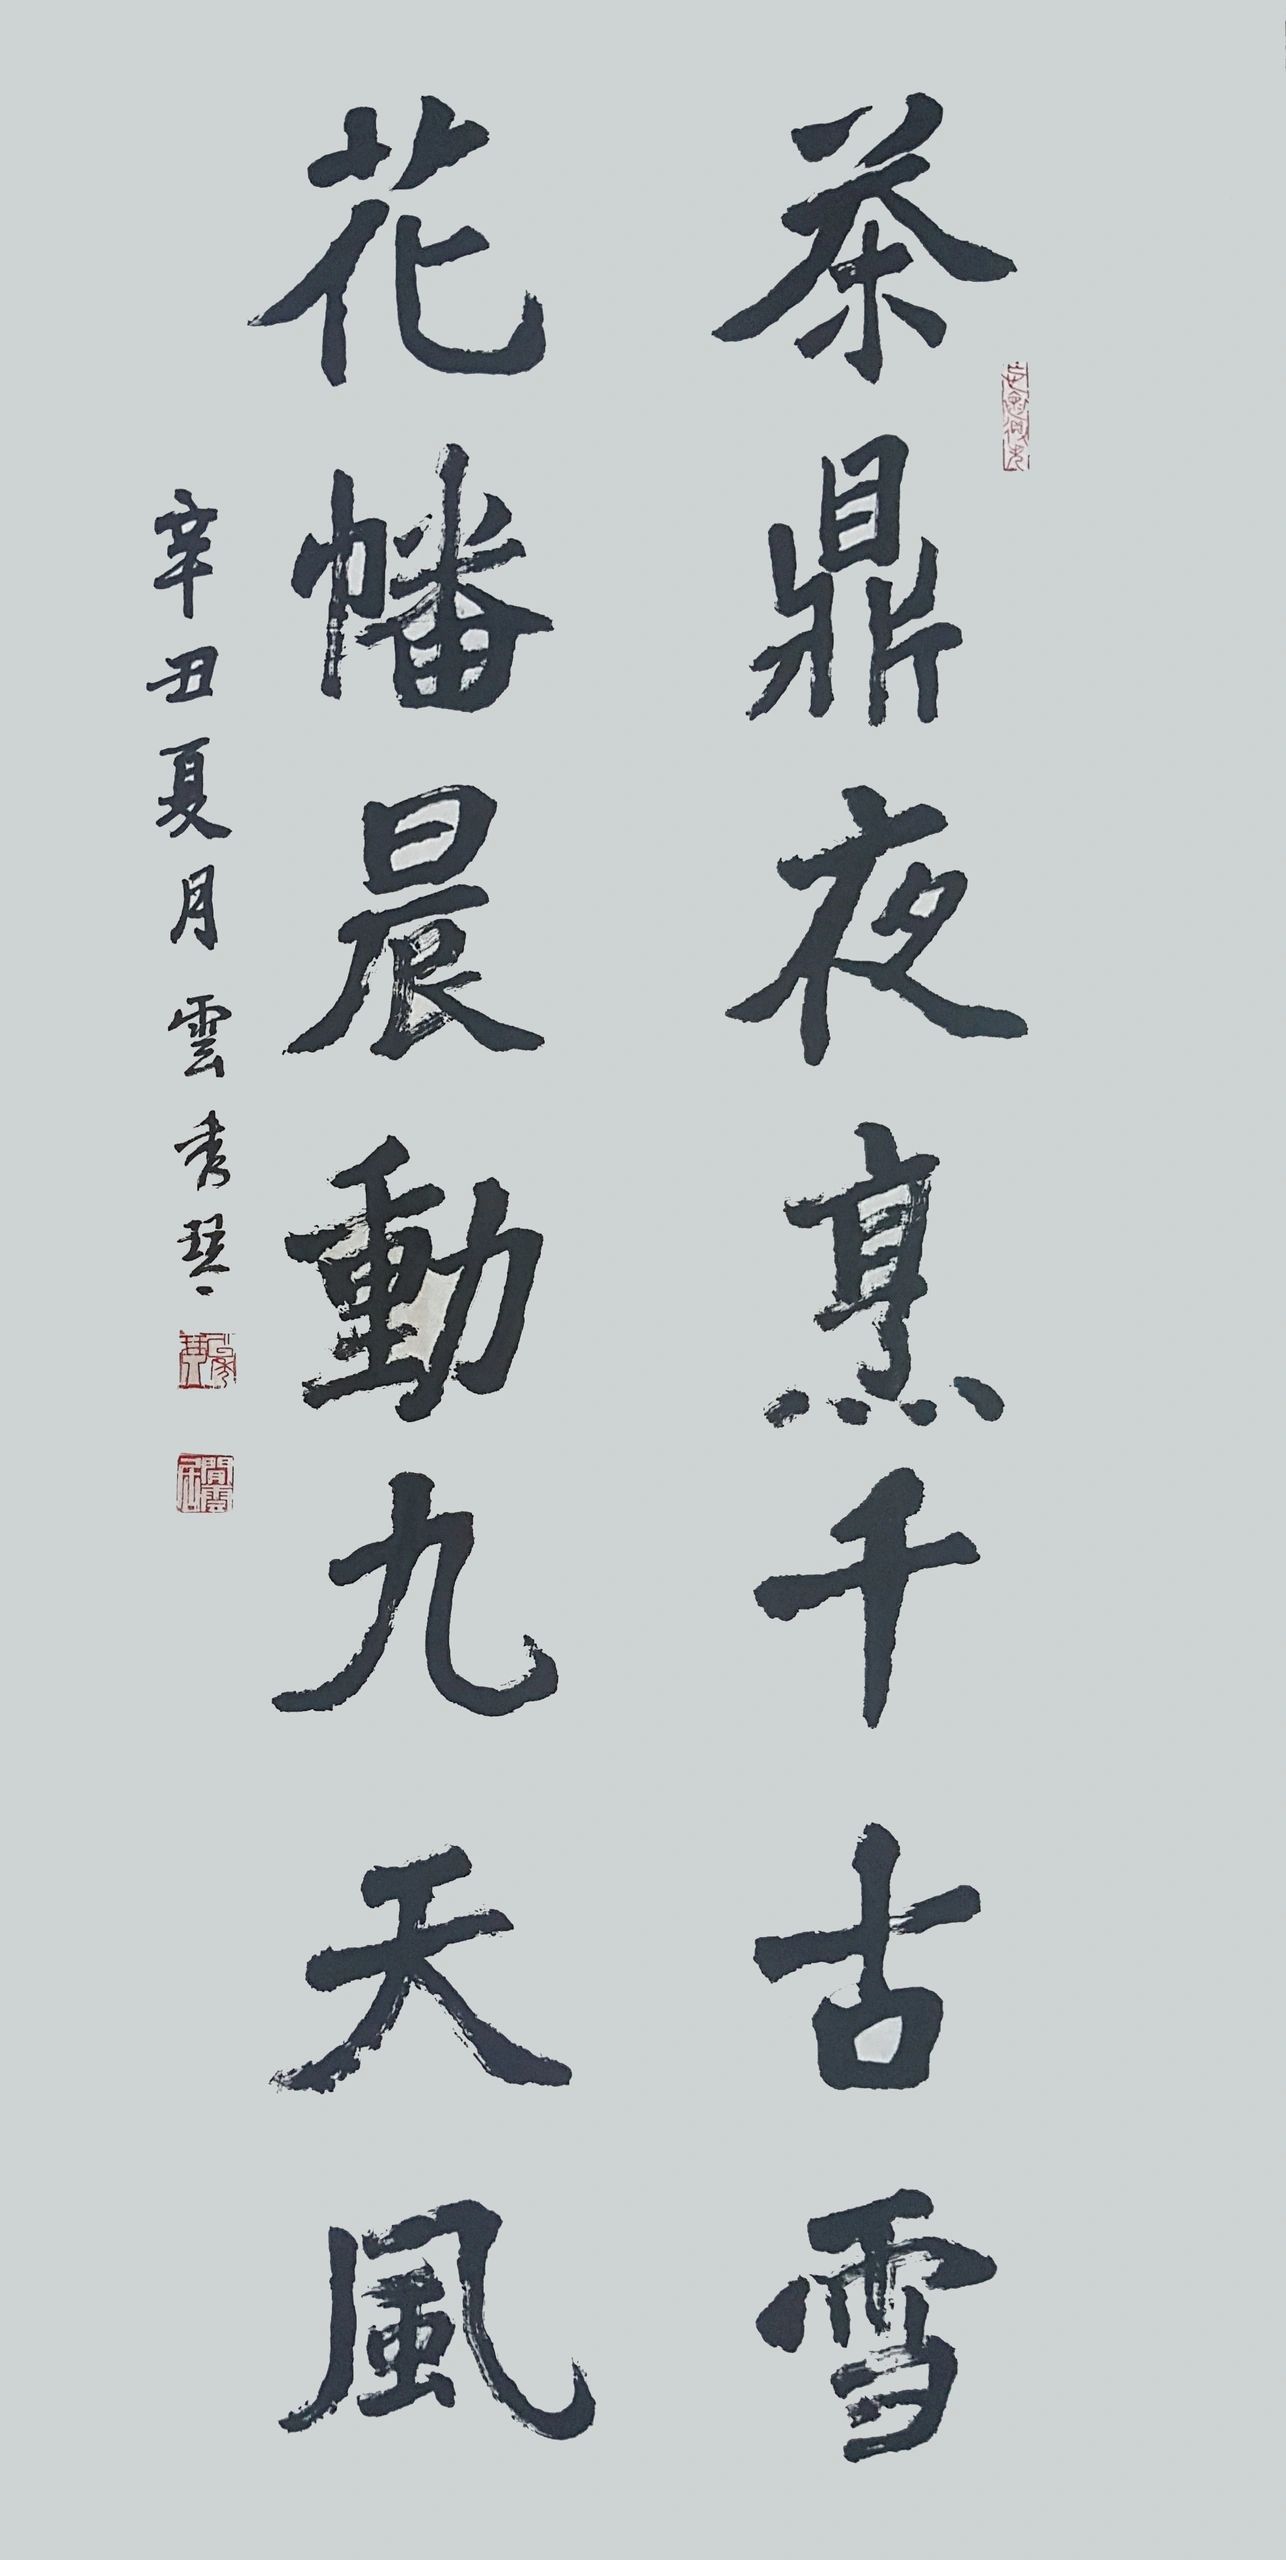 茶鼎夜烹千古雪
花幡晨動九天風
辛丑夏月雲秀琴